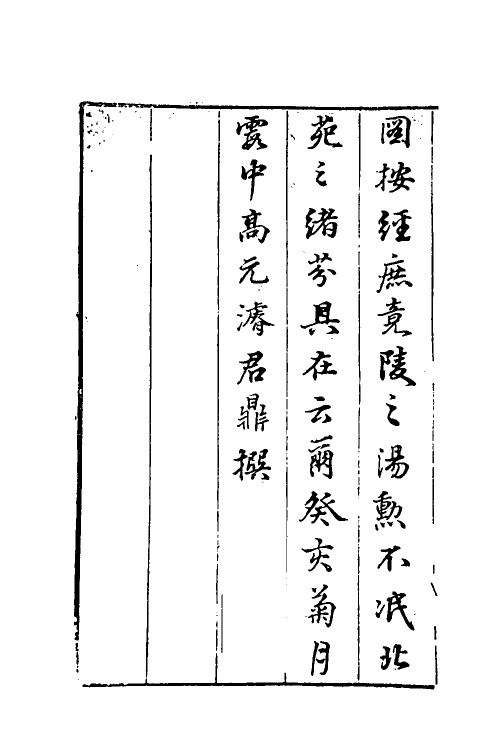 圖按經庶竟陵之湯勳不泯北
苑之緒芬具在云爾癸亥菊月
霞中高元濬君鼎撰